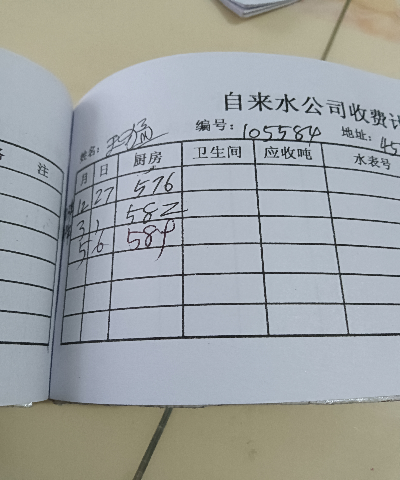 注
自来水公司收费计
姓名: 编号: 105584 地址: 45
月 日 厨房 卫生间 应收吨 水表号
12 27 576
3 1 582
5 6 584